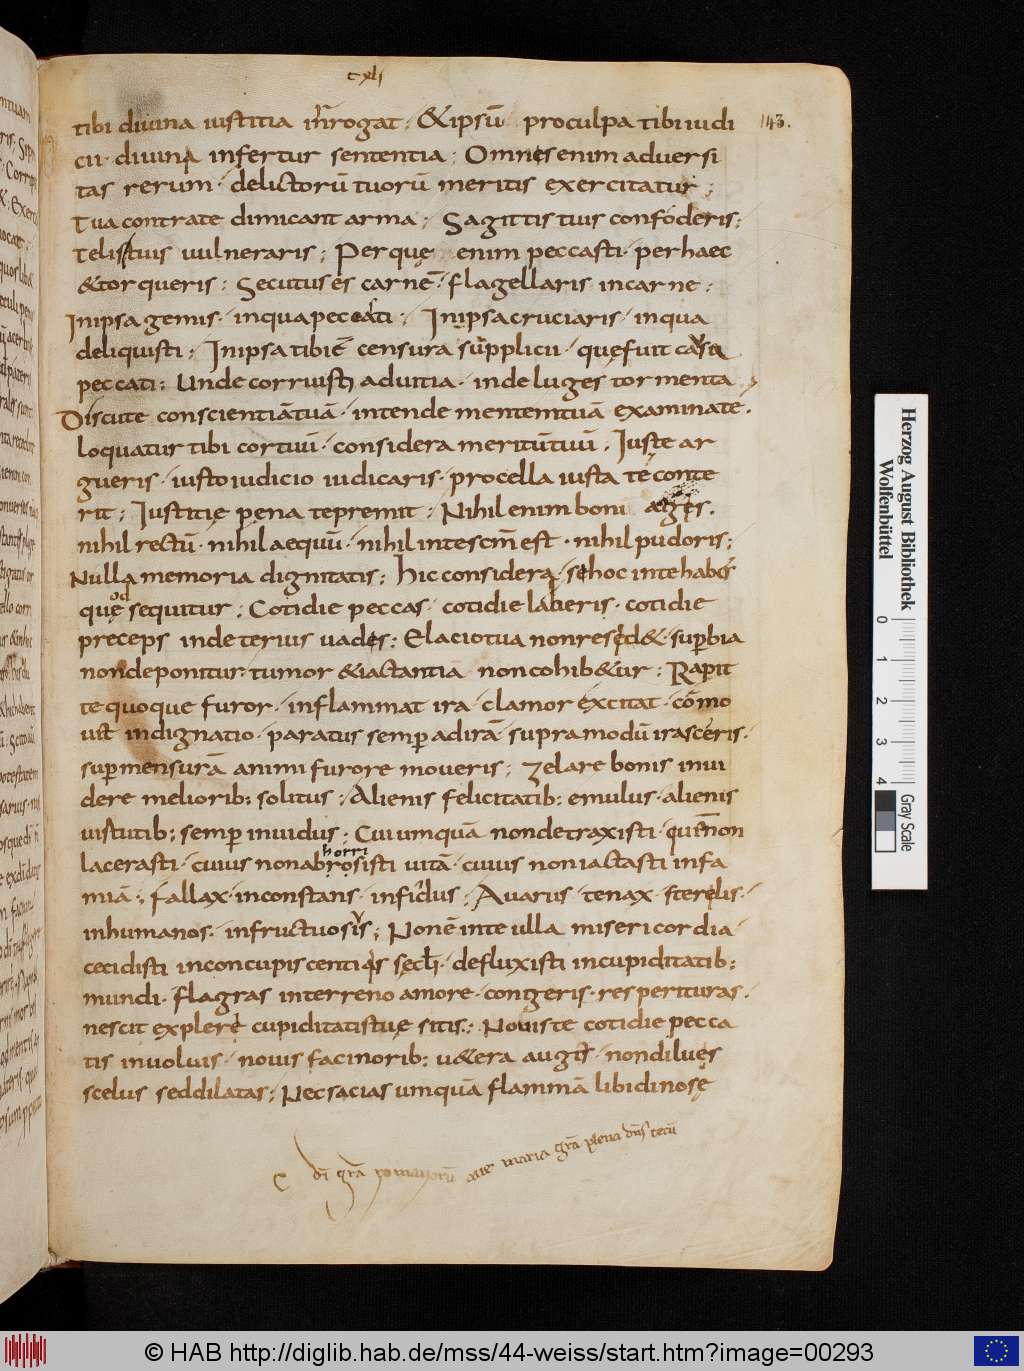 cxli
tibi diuina iustitia inrogat; &ipsū proculpa tibi iudi
143.
cii· diuina infertur sententia; Omnes enim aduersi
tas rerum· delictorū tuorū meritis exercitatur;
Tua contrate dimicant arma; Sagittis tuis confoderis;
telis tuis uulneraris; Per quę enim peccasti· per haec
& tor queris; Secutus es carnē· flagellaris incarne;
Inipsa gemis· inqua peccati; Inipsa cruciaris· inqua
deliquisti; Inipsa tibi ē censura supplicii· quę fuit causa
peccati; Unde corruisti aduitia· inde luges tormenta
Discute conscientiā tuā· intende mentem tuā examinate·
loquatur tibi cor tuū· considera meritū tuū; Iuste ar
gueris· iusto iudicio iudicaris· procella iusta te conte
rit; Iustitię pena te premit; Nihil enim boni ages·
nihil rectū· nihil aequū· nihil intescm̄ est· nihil pudoris;
Nulla memoria dignitatis; hic considera· se hoc inte habes
quę sequitur; Cotidie peccas· cotidie laberis· cotidie
preceps inde terius uades; Elacio tua non resed&· sup̄bia
non deponitur· tumor & iactantia non cohib&ur; Rapit
te quoque furor· inflammat ira· clamor excitat· cōmo
uet indignatio· paratus semp adirā supra modū irasceris·
sup mensurā animi furore moueris; Zelare bonis inui
dere meliorib; solitus; Alienis felicitatib; emulus· alienis
uistutib; semp inuidus; Cui umquā non detraxisti· quēnon
horri
lacerasti· cuius non abrosisti uitā· cuius non iactasti infa
miā; fallax· inconstans· infidus; Auarus· tenax· sterelis·
inhumanos· infructuosis; Non ē inte ulla misericordia·
cecidisti inconcupiscentias sęcli· defluxisti incupiditatib;
mundi· flagras interreno amore· congeris· res perituras·
nescit explere cupiditatis tuę sitis; Nouis te cotidie pecca
tis inuoluis· nouis facinorib; u&era auges· non diluęs
scelus sed dilatas; Nec sacias umquā flammā libidinosę
di grā romanorū aue maria grā plena dn̄s tecū
Herzog August Bibliothek
Wolfenbüttel
0 1 2 3 4
Gray Scale
© HAB http://diglib.hab.de/mss/44-weiss/start.htm?image=00293